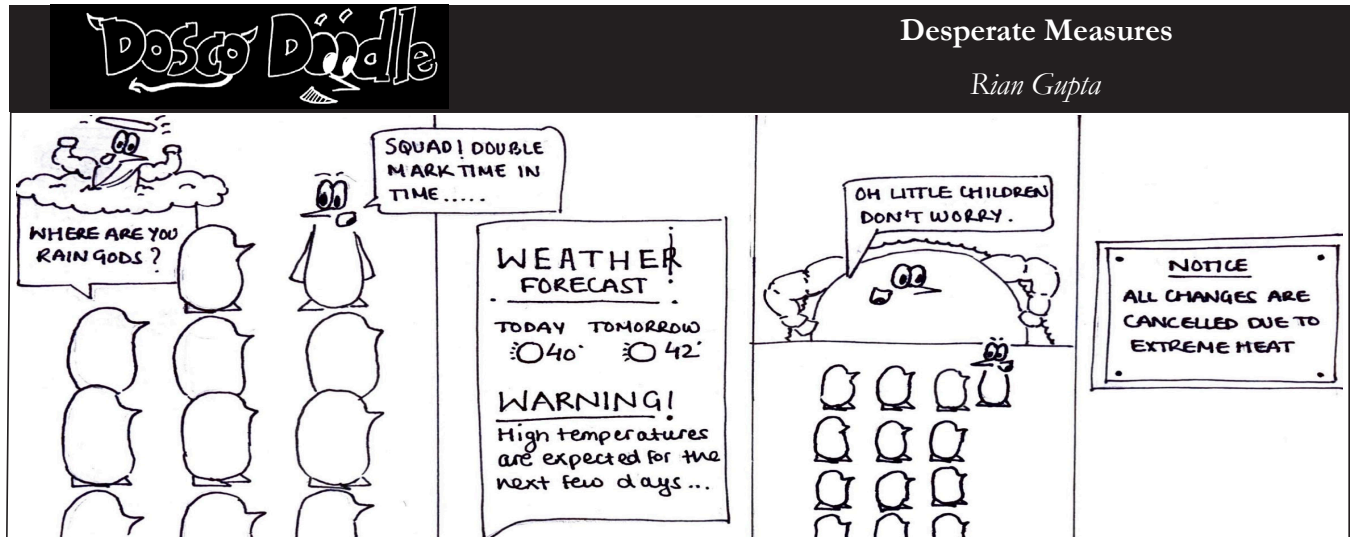 Dosco Doodle
Desperate Measures
Rian Gupta
WHERE ARE YOU
RAIN GODS?
SQUAD! DOUBLE
MARK TIME IN
TIME.....
WEATHER
FORECAST
TODAY TOMORROW
40° 42°
WARNING!
High temperatures
are expected for the
next few days...
OH LITTLE CHILDREN
DON'T WORRY.
NOTICE
ALL CHANGES ARE
CANCELLED DUE TO
EXTREME HEAT